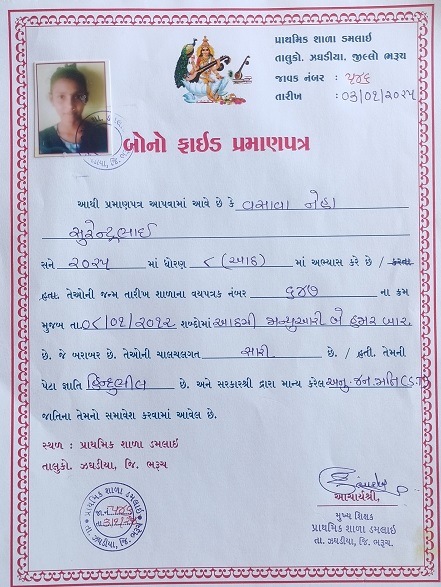 પ્રાથમિક શાળા ડમલાઇ
તાલુકો. ઝઘડીયા, જીલ્લો ભરૂચ
જાવક નંબર : ૫૪૬
તારીખ : ૦૩/૦૧/૨૦૨૫
બોનો ફાઈડ પ્રમાણપત્ર
આથી પ્રમાણપત્ર આપવામાં આવે છે કે વસાવા નેહા
સુરેન્દ્રભાઈ
સને ૨૦૨૫ માં ધોરણ ૮ (આઠ) માં અભ્યાસ કરે છે / કરતા
હતા. તેઓની જન્મ તારીખ શાળાના વયપત્રક નંબર ૬૪૭ ના ક્રમ
મુજબ તા. ૦૮/૦૧/૨૦૧૨ શબ્દોમાં આઠમી જાન્યુઆરી બે હજાર બાર.
છે. જે બરાબર છે. તેઓની ચાલચલગત સારી છે. / હતી. તેમની
પેટા જ્ઞાતિ હિન્દુભીલ છે. અને સરકારશ્રી દ્વારા માન્ય કરેલ અનુ. જન. જાતિ (S.T)
જાતિના તેમનો સમાવેશ કરવામાં આવેલ છે.
સ્થળ : પ્રાથમિક શાળા ડમલાઇ
તાલુકો. ઝઘડીયા, જિ. ભરૂચ
પ્રાથમિક શાળા ડમલાઇ
તા. ઝઘડીયા, જિ. ભરૂચ
આચાર્યશ્રી,
મુખ્ય શિક્ષક
પ્રાથમિક શાળા ડમલાઇ
તા. ઝઘડીયા, જિ. ભરૂચ